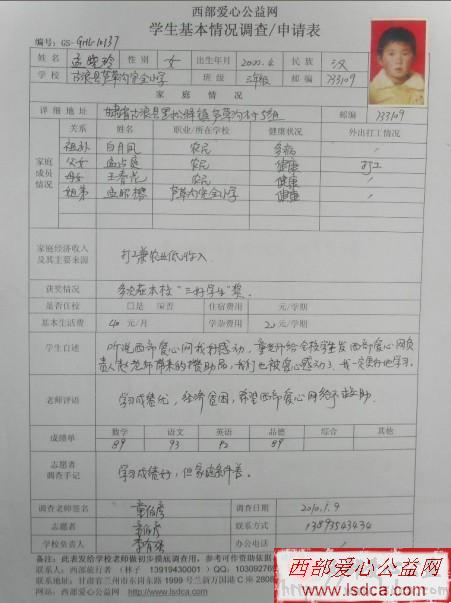 西部爱心公益网
学生基本情况调查/申请表
编号: GS-GHL10137
姓名 孟晓玲 性别 女 出生年月 2000.6 民族 汉
学校 古浪县 完全小学 班级 三年级 邮编 733109
家庭情况
详细地址 甘肃省古浪县黑松驿镇芦草沟村5组 邮编 733109
关系 姓名 职业/所在学校 健康状况 外出打工情况
家庭成员情况
白月凤 农民 多病 /
父女 孟 农民 健康 打工
母女 王春花 农民 健康 /
芦草沟完全小学 健康 /
家庭经济收入及其主要来源 打工兼农业低收入
获奖情况 多次在本校"三好学生"奖.
是否住校 □是 否 住宿费用 元/学期
基本生活费 40 元/月 学杂费用 20 元/学期
学生自述 听说西部爱心网我好感动,童老师给全校学生发西部爱心网负
责人赵老师带来的赞助品,我们也被爱心感动了,我一定要好好学习。
老师评语 学习成绩优,经济贫困,希望西部爱心网给予救助.
成绩单 数学 语文 英语 品德 综合 其他
89 93 92 89
志愿者调查手记 学习成绩好,但家庭条件差。
调查老师签名 童 调查日期 2010.9.9
志愿者 童 联系方式 13893543434
学校负责人 李 办公电话 /
备注:此表发给学校老师做初步摸底调查用,参考可作资助依据
联系人:西部旅行者 (林子 13919430001) QQ: 10309276
联系地址:甘肃省兰州市东岗东路1999号兰新万国港C座2808
网站地址 http://www.lsdca.com
西部爱心公益网
www.lsdca.com